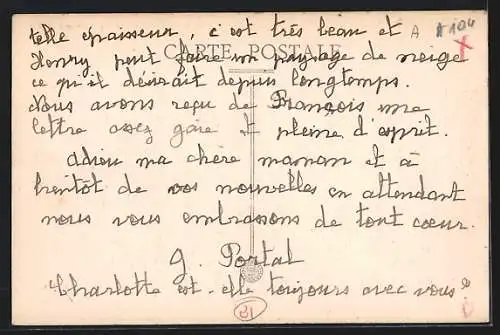 telle épaisseur, c'est très beau et A A 104
CARTE POSTALE
Henry peut faire un paysage de neige X
ce qu'il désirait depuis longtemps.
Nous avons reçu de François une
lettre assez gaie et pleine d'esprit.
Adieu ma chère maman et à
bientôt de vos nouvelles en attendant
nous vous embrassons de tout cœur.
J. Portal
Charlotte est-elle toujours avec vous?